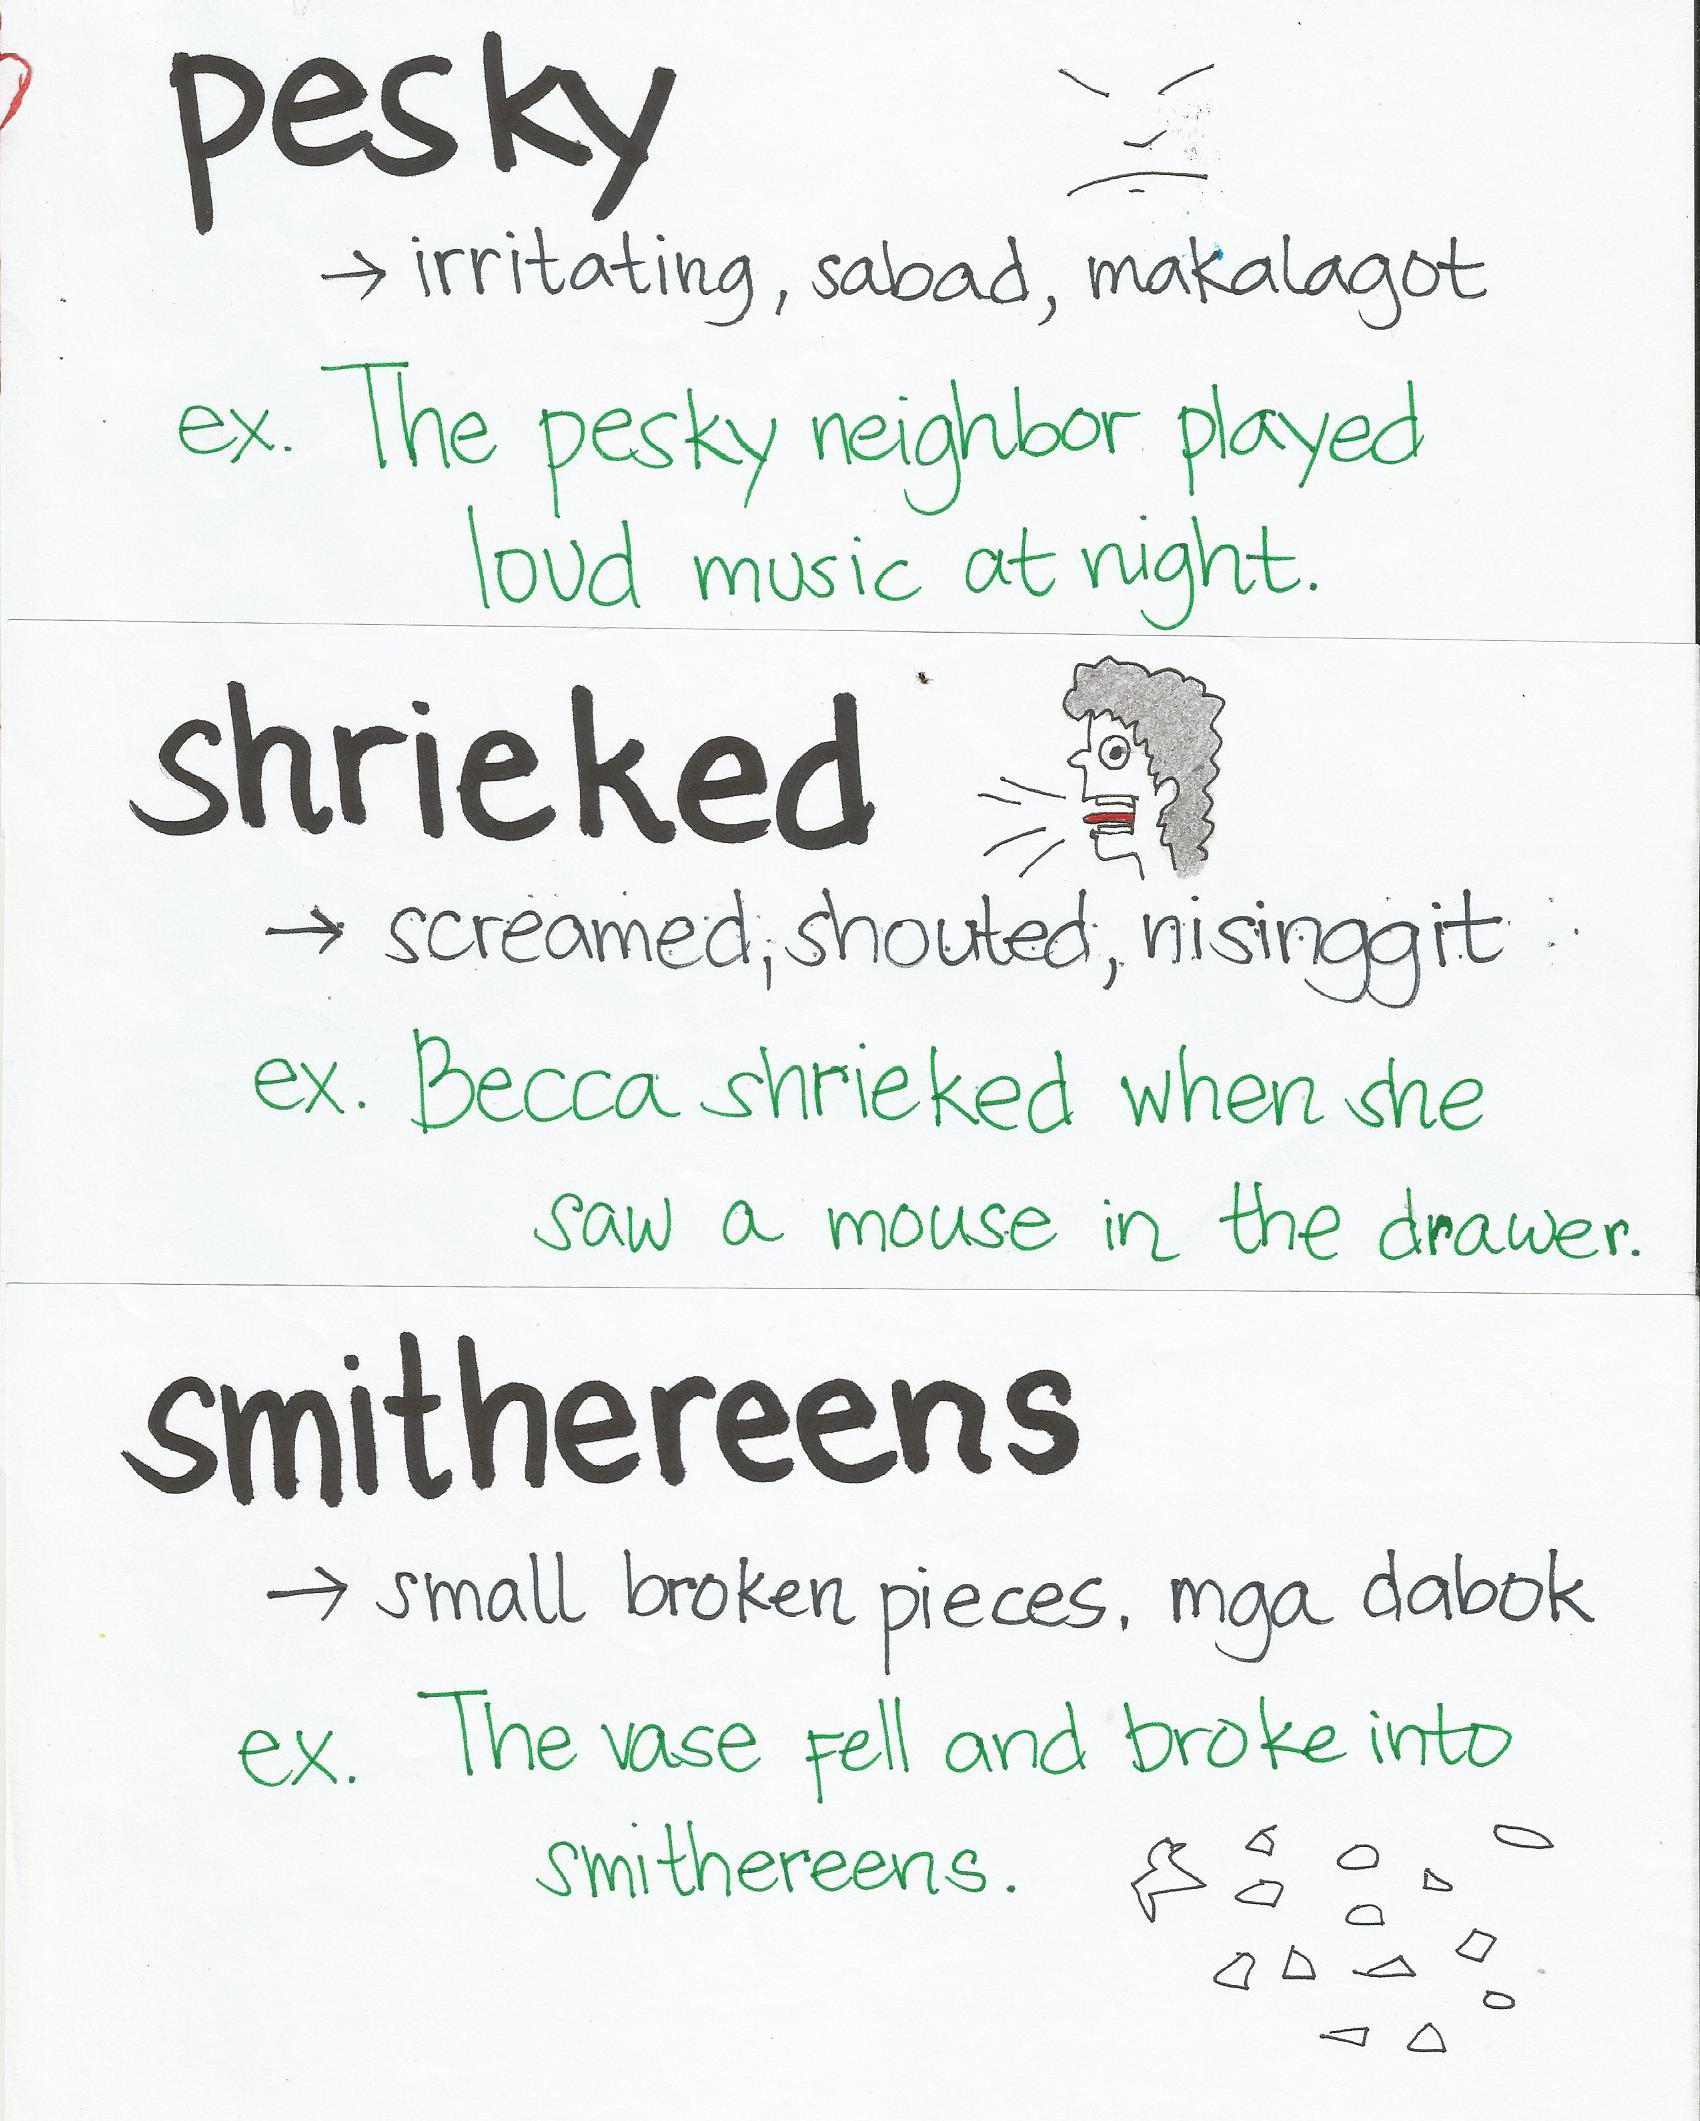 pesky
→ irritating, sabad, makalagot
ex. The pesky neighbor played
loud music at night.
shrieked
→ screamed, shouted, nisinggit
ex. Becca shrieked when she
saw a mouse in the drawer.
smithereens
→ small broken pieces, mga dabok
ex. The vase fell and broke into
smithereens.